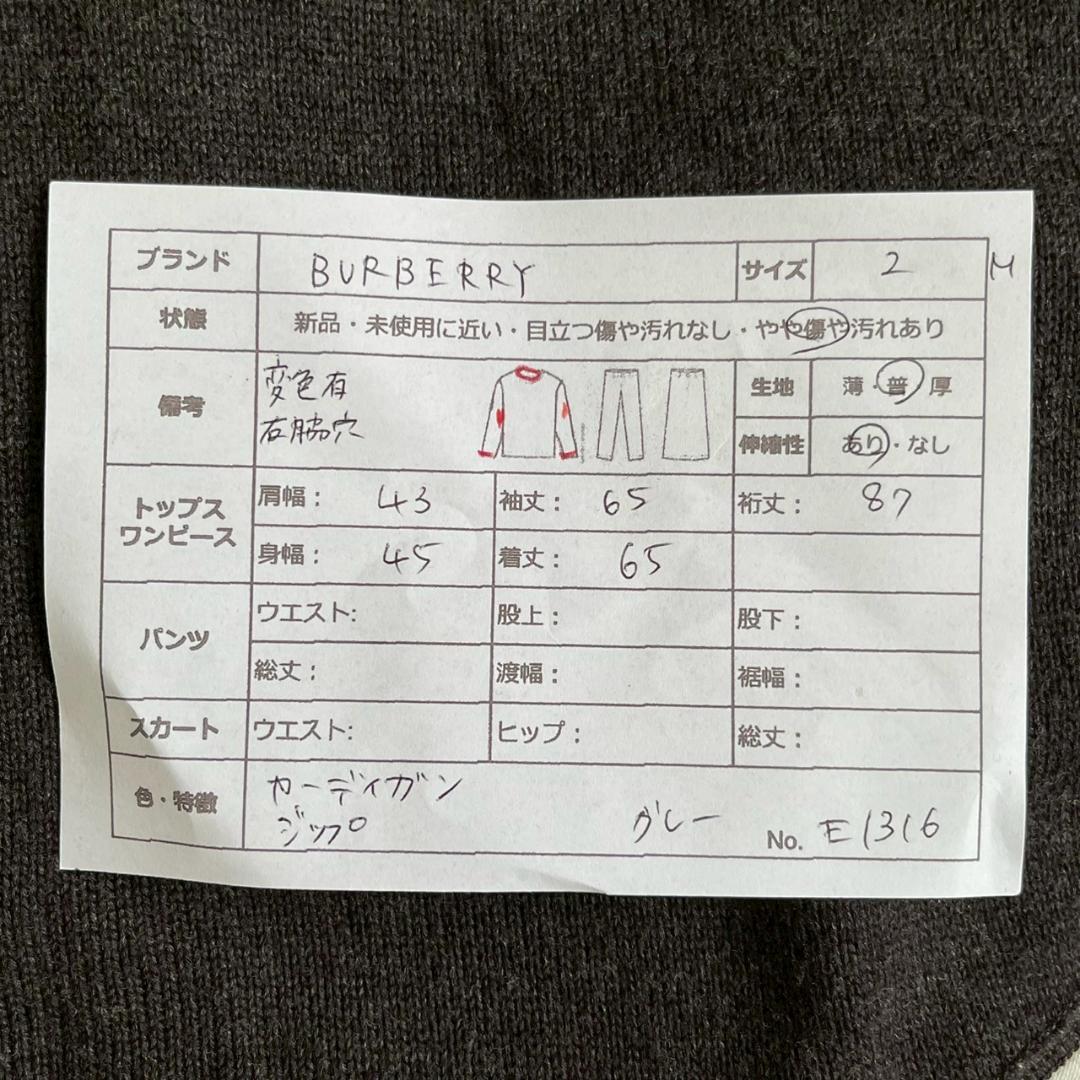 ブランド BURBERRY サイズ 2 M
状態 新品・未使用に近い・目立つ傷や汚れなし・やや傷や汚れあり
備考 変色有 生地 薄・普・厚
右脇穴 伸縮性 あり・なし
トップス ワンピース 肩幅: 43 袖丈: 65 裄丈: 87
身幅: 45 着丈: 65
パンツ ウエスト: 股上: 股下:
総丈: 渡幅: 裾幅:
スカート ウエスト: ヒップ: 総丈:
色・特徴 カーディガン
ジップ グレー No. E1316